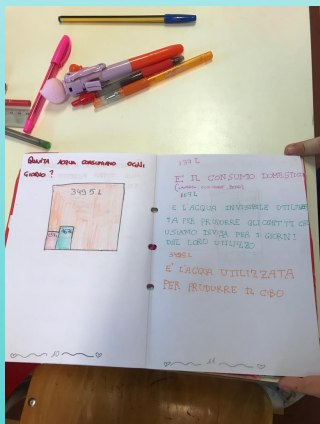 QUANTA ACQUA CONSUMIAMO OGNI
GIORNO?
3495 L
10
E' IL CONSUMO DOMESTICO
E L'ACQUA INVISIBILE UTILIZZA
TA PER PRODURRE GLI OGGETTI CHE
USIAMO DIVISA PER I GIORNI
DEL LORO UTILIZZO
3495 L
E' L'ACQUA UTILIZZATA
PER PRODURRE IL CIBO
11